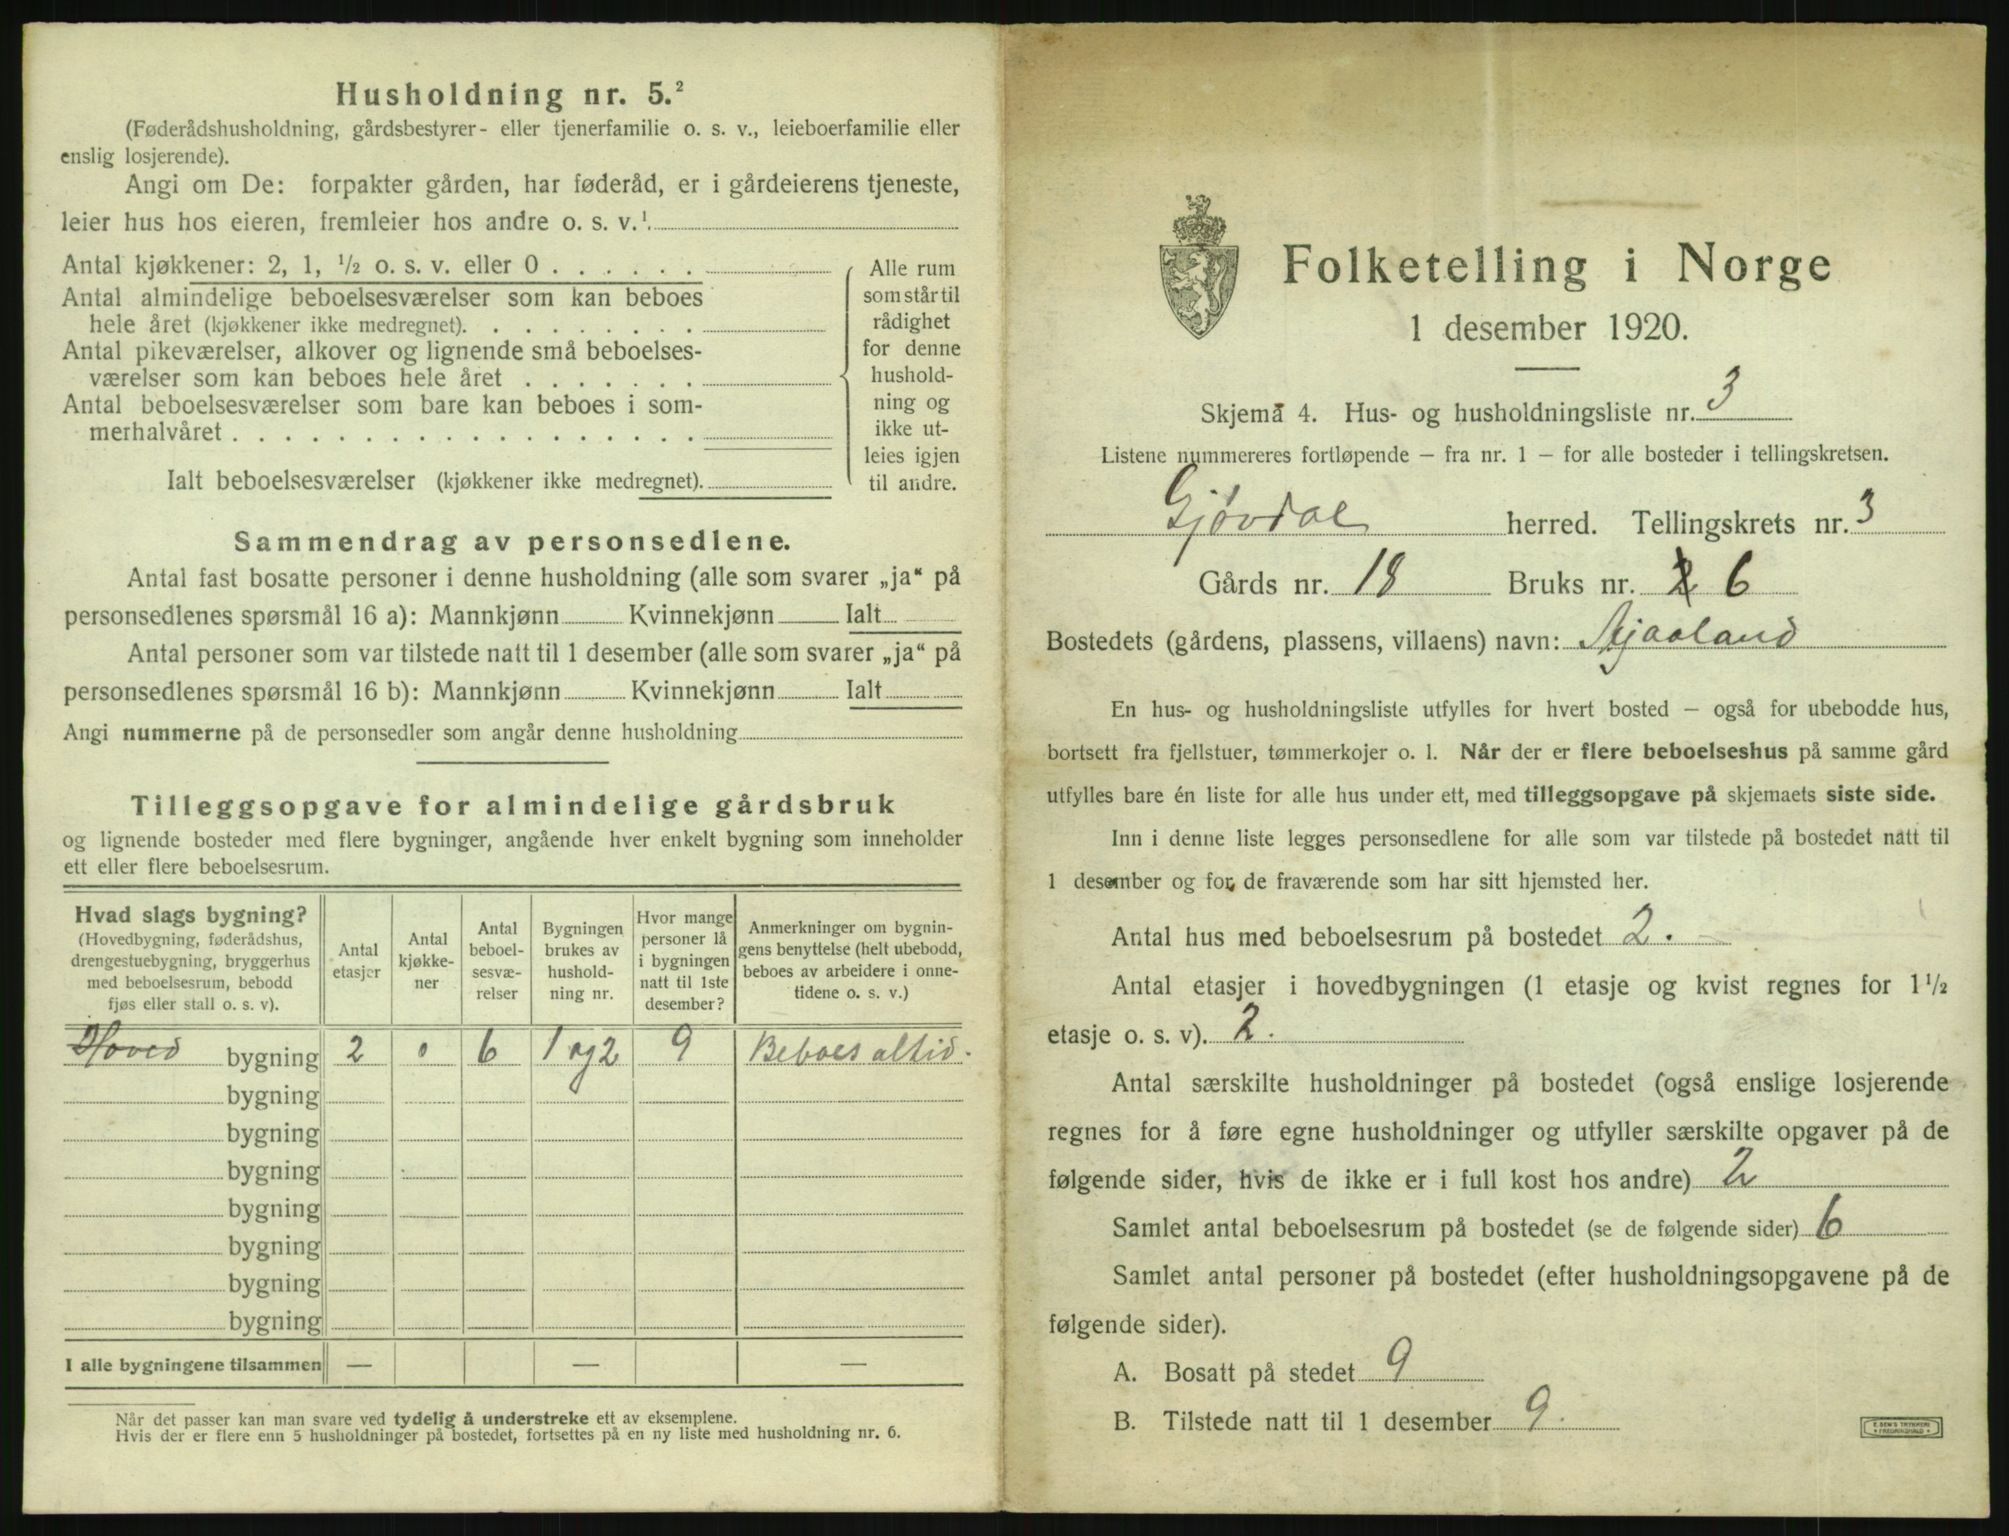 Husholdning nr. 5.²
(Føderådshusholdning, gårdsbestyrer- eller tjenerfamilie o. s. v., leieboerfamilie eller
enslig losjerende).
Angi om De: forpakter gården, har føderåd, er i gårdeierens tjeneste,
leier hus hos eieren, fremleier hos andre o. s. v.¹
Antal kjøkkener: 2, 1, ½ o. s. v. eller 0
Antal almindelige beboelsesværelser som kan beboes
hele året (kjøkkener ikke medregnet).
Antal pikeværelser, alkover og lignende små beboelses-
værelser som kan beboes hele året
Antal beboelsesværelser som bare kan beboes i som-
merhalvåret
Ialt beboelsesværelser (kjøkkener ikke medregnet).
Alle rum
som står til
rådighet
for denne
hushold-
ning og
ikke ut-
leies igjen
til andre.
Sammendrag av personsedlene.
Antal fast bosatte personer i denne husholdning (alle som svarer „ja“ på
personsedlenes spørsmål 16 a): Mannkjønn Kvinnekjønn Ialt
Antal personer som var tilstede natt til 1 desember (alle som svarer „ja“ på
personsedlenes spørsmål 16 b): Mannkjønn Kvinnekjønn Ialt
Angi nummerne på de personsedler som angår denne husholdning
Tilleggsopgave for almindelige gårdsbruk
og lignende bosteder med flere bygninger, angående hver enkelt bygning som inneholder
ett eller flere beboelsesrum.
Hvad slags bygning?
(Hovedbygning, føderådshus,
drengestuebygning, bryggerhus
med beboelsesrum, bebodd
fjøs eller stall o. s. v).
Antal
etasjer
Antal
kjøkke-
ner
Antal
beboel-
sesvæ-
relser
Bygningen
brukes av
hushold-
ning nr.
Hvor mange
personer lå
i bygningen
natt til 1ste
desember?
Anmerkninger om bygnin-
gens benyttelse (helt ubebodd,
beboes av arbeidere i onne-
tidene o. s. v.)
Hoved bygning 2 0 6 1 og 2 9 Beboes altid.
bygning
bygning
bygning
bygning
bygning
bygning
bygning
I alle bygningene tilsammen — — —
Når det passer kan man svare ved tydelig å understreke ett av eksemplene.
Hvis der er flere enn 5 husholdninger på bostedet, fortsettes på en ny liste med husholdning nr. 6.
Folketelling i Norge
1 desember 1920.
Skjema 4. Hus- og husholdningsliste nr. 3
Listene nummereres fortløpende — fra nr. 1 — for alle bosteder i tellingskretsen.
Gjøvdal herred. Tellingskrets nr. 3
Gårds nr. 18 Bruks nr. 2 6
Bostedets (gårdens, plassens, villaens) navn:
En hus- og husholdningsliste utfylles for hvert bosted — også for ubebodde hus,
bortsett fra fjellstuer, tømmerkojer o. l. Når der er flere beboelseshus på samme gård
utfylles bare én liste for alle hus under ett, med tilleggsopgave på skjemaets siste side.
Inn i denne liste legges personsedlene for alle som var tilstede på bostedet natt til
1 desember og for de fraværende som har sitt hjemsted her.
Antal hus med beboelsesrum på bostedet 2.
Antal etasjer i hovedbygningen (1 etasje og kvist regnes for 1½
etasje o. s. v). 2.
Antal særskilte husholdninger på bostedet (også enslige losjerende
regnes for å føre egne husholdninger og utfyller særskilte opgaver på de
følgende sider, hvis de ikke er i full kost hos andre) 2
Samlet antal beboelsesrum på bostedet (se de følgende sider) 6
Samlet antal personer på bostedet (efter husholdningsopgavene på de
følgende sider).
A. Bosatt på stedet 9
B. Tilstede natt til 1 desember 9.
E. SEM'S TRYKKERI
FREDRIKSHALD